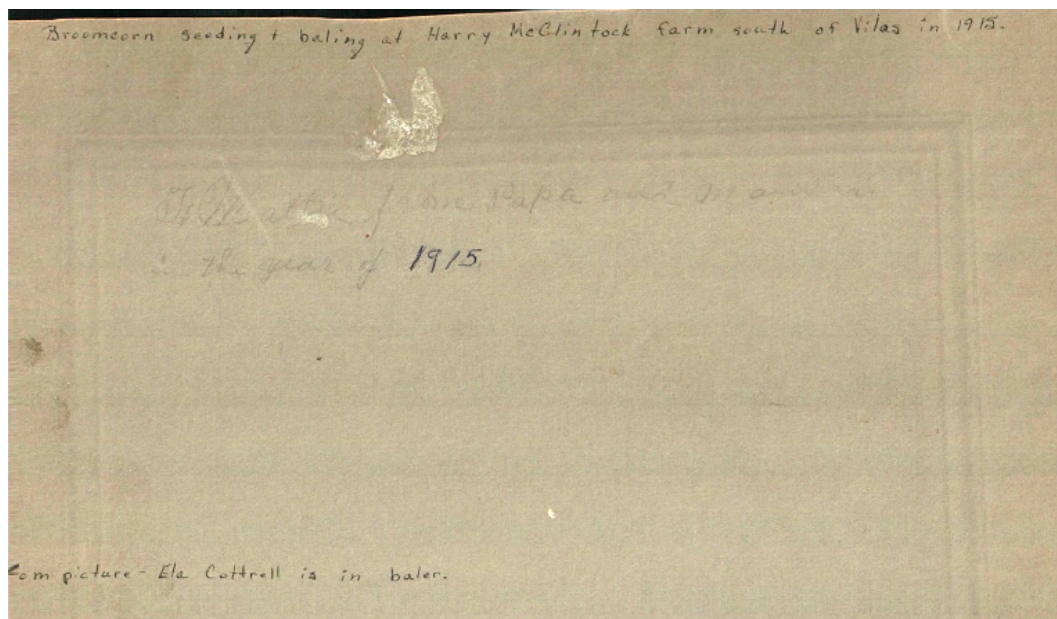 Broomcorn seeding + baling at Harry McClintock farm south of Vilas in 1915.
from Papa and Mama
in the year of 1915.
picture - Ela Cottrell is in baler.